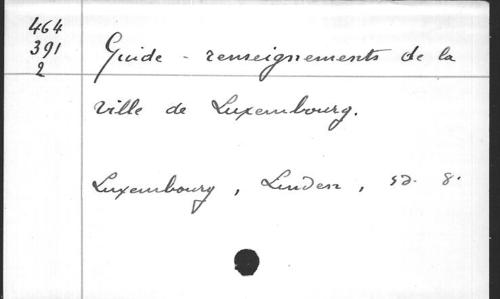 464
391
2
Guide - renseignements de la
ville de Luxembourg.
Luxembourg, Linden, sd. 8.